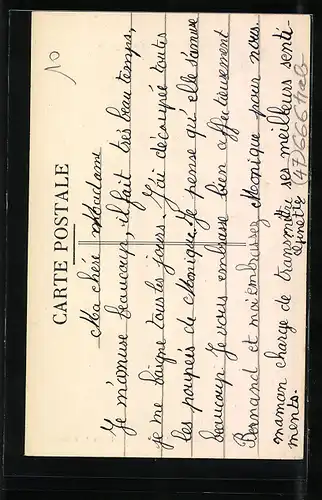 10
CARTE POSTALE
Ma chère Madame
Je m'amuse beaucoup, il fait très beau temps,
je me baigne tous les jours. J'ai découpée toutes
les poupées de Monique. Je pense qu'elle s'amuse
beaucoup. Je vous embrasse bien affectueusement
Bernard et moi embrassez Monique pour nous.
maman charge de transmettre ses meilleurs senti-
ments.
Ginette